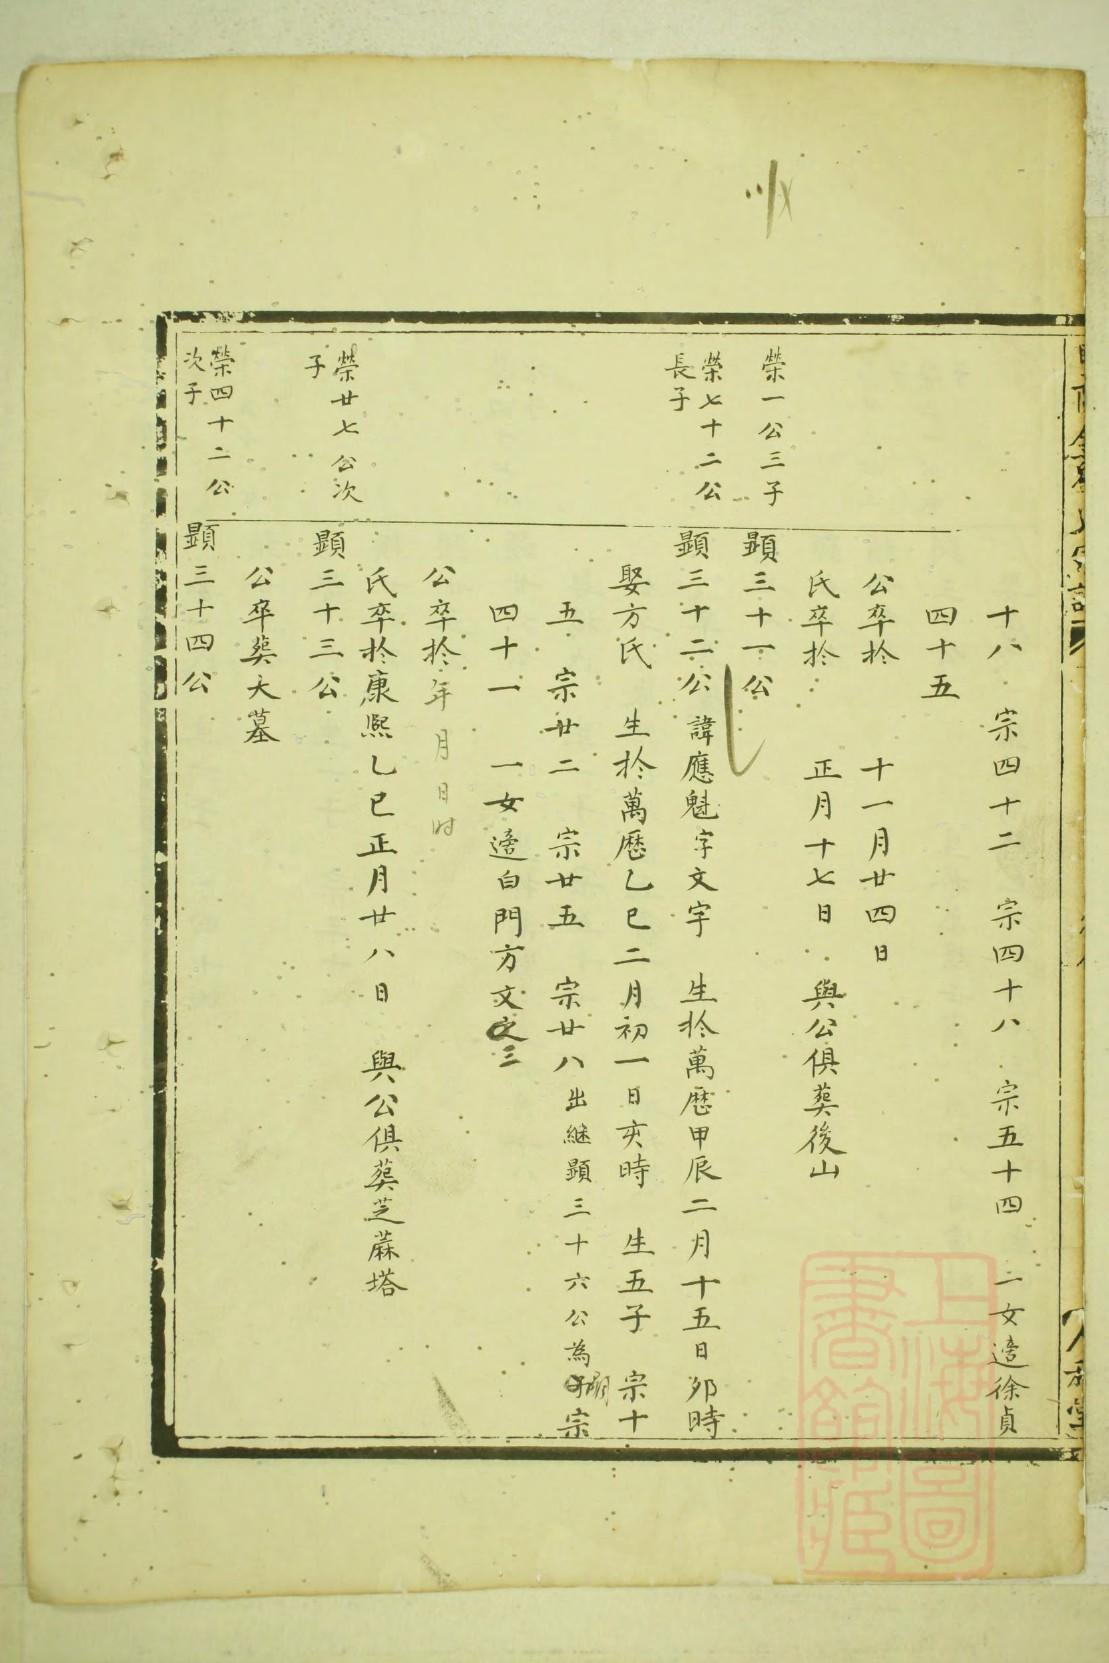 十八 宗四十二 宗四十八 宗五十四 二女適徐貞
四十五
公卒於 十一月廿四日
氏卒於 正月十七日 與公俱葬後山
榮一公三子
顯三十一公
榮七十二公
長子
顯三十二公諱應魁字文宇 生於萬歷甲辰二月十五日卯時
娶方氏 生於萬歷乙巳二月初一日亥時 生五子 宗十
五 宗廿二 宗廿五 宗廿八出継顯三十六公為 宗
四十一 一女適白門方文之三
公卒於年月日时
氏卒於康熙乙巳正月廿八日 與公俱葬芝蔴塔
榮廿七公次
子
顯三十三公
公卒葬大墓
榮四十二公
次子
顯三十四公
上海圖
書館藏